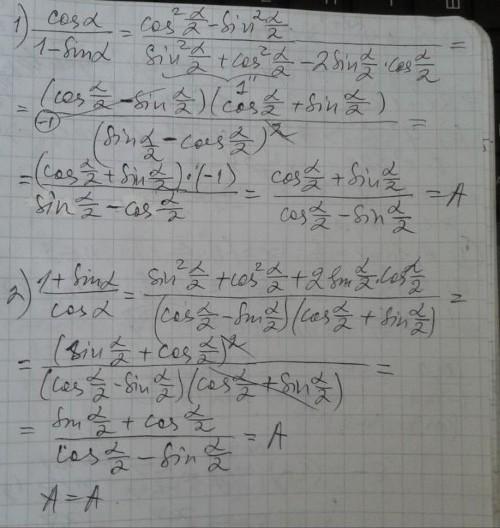 1) cosα/(1-sinα) = (cos²α/2 - sin²α/2)/(sin²α/2 + cos²α/2 - 2sinα/2·cosα/2) =
1
= (cosα/2 - sinα/2)(cosα/2 + sinα/2)/(sinα/2 - cosα/2)² =
-1
= (cosα/2 + sinα/2)·(-1)/(sinα/2 - cosα/2) = (cosα/2 + sinα/2)/(cosα/2 - sinα/2) = A
2) (1 + sinα)/cosα = (sin²α/2 + cos²α/2 + 2sinα/2·cosα/2)/((cosα/2 - sinα/2)(cosα/2 + sinα/2)) =
= (sinα/2 + cosα/2)²/((cosα/2 - sinα/2)(cosα/2 + sinα/2)) =
= (sinα/2 + cosα/2)/(cosα/2 - sinα/2) = A
A = A